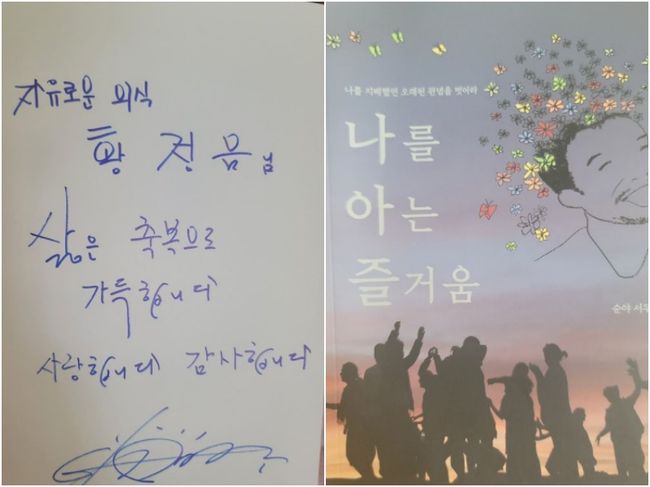 자유로운 의식
황정음님
삶은 축복으로
가득합니다
사랑합니다 감사합니다
나를 지배했던 오래된 관념을 벗어라
나를
아는
즐거움
순야 서